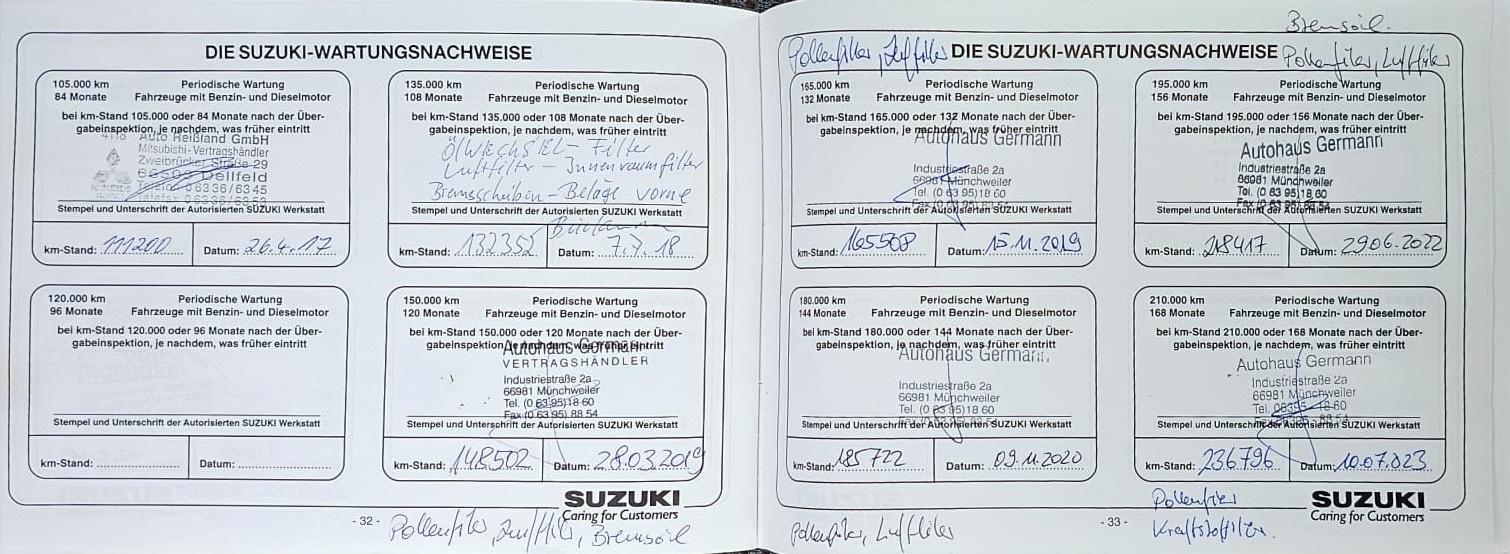 DIE SUZUKI-WARTUNGSNACHWEISE
105.000 km Periodische Wartung
84 Monate Fahrzeuge mit Benzin- und Dieselmotor
bei km-Stand 105.000 oder 84 Monate nach der Über-
gabeinspektion, je nachdem, was früher eintritt
4118 Auto Heißland GmbH
Mitsubishi-Vertragshändler
Zweibrücker Straße 29
66503 Dellfeld
Telefon 06336/6345
Telefax 06336/6353
Stempel und Unterschrift der Autorisierten SUZUKI Werkstatt
km-Stand: 111200 Datum: 26.4.17
135.000 km Periodische Wartung
108 Monate Fahrzeuge mit Benzin- und Dieselmotor
bei km-Stand 135.000 oder 108 Monate nach der Über-
gabeinspektion, je nachdem, was früher eintritt
ÖLWECHSEL - Filter
Luftfilter - Innenraumfilter
Bremsscheiben - Beläge vorne
Stempel und Unterschrift der Autorisierten SUZUKI Werkstatt
km-Stand: 132352 Datum: 7.7.18
120.000 km Periodische Wartung
96 Monate Fahrzeuge mit Benzin- und Dieselmotor
bei km-Stand 120.000 oder 96 Monate nach der Über-
gabeinspektion, je nachdem, was früher eintritt
Stempel und Unterschrift der Autorisierten SUZUKI Werkstatt
km-Stand: Datum:
150.000 km Periodische Wartung
120 Monate Fahrzeuge mit Benzin- und Dieselmotor
bei km-Stand 150.000 oder 120 Monate nach der Über-
gabeinspektion, je nachdem, was früher eintritt
Autohaus Germann
VERTRAGSHÄNDLER
Industriestraße 2a
66981 Münchweiler
Tel. (0 63 95) 18 60
Fax (0 63 95) 88 54
Stempel und Unterschrift der Autorisierten SUZUKI Werkstatt
km-Stand: 148502 Datum: 28.03.2019
SUZUKI
Caring for Customers
- 32 -
Pollenfilter, Luftfilter, Bremsöil
Pollenfilter, Luftfilter
DIE SUZUKI-WARTUNGSNACHWEISE
Bremsöil.
Pollenfilter, Luftfilter
165.000 km Periodische Wartung
132 Monate Fahrzeuge mit Benzin- und Dieselmotor
bei km-Stand 165.000 oder 132 Monate nach der Über-
gabeinspektion, je nachdem, was früher eintritt
Autohaus Germann
Industriestraße 2a
66981 Münchweiler
Tel. (0 63 95) 18 60
Fax (0 63 95) 88 54
Stempel und Unterschrift der Autorisierten SUZUKI Werkstatt
km-Stand: 165508 Datum: 15.11.2019
195.000 km Periodische Wartung
156 Monate Fahrzeuge mit Benzin- und Dieselmotor
bei km-Stand 195.000 oder 156 Monate nach der Über-
gabeinspektion, je nachdem, was früher eintritt
Autohaus Germann
Industriestraße 2a
66981 Münchweiler
Tel. (0 63 95) 18 60
Fax (0 63 95) 88 54
Stempel und Unterschrift der Autorisierten SUZUKI Werkstatt
km-Stand: 218417 Datum: 29.06.2022
180.000 km Periodische Wartung
144 Monate Fahrzeuge mit Benzin- und Dieselmotor
bei km-Stand 180.000 oder 144 Monate nach der Über-
gabeinspektion, je nachdem, was früher eintritt
Autohaus Germann
Industriestraße 2a
66981 Münchweiler
Tel. (0 63 95) 18 60
Stempel und Unterschrift der Autorisierten SUZUKI Werkstatt
km-Stand: 185722 Datum: 09.11.2020
210.000 km Periodische Wartung
168 Monate Fahrzeuge mit Benzin- und Dieselmotor
bei km-Stand 210.000 oder 168 Monate nach der Über-
gabeinspektion, je nachdem, was früher eintritt
Autohaus Germann
Industriestraße 2a
66981 Münchweiler
Tel. 06395 - 18 60
Stempel und Unterschrift der Autorisierten SUZUKI Werkstatt
km-Stand: 236796 Datum: 10.07.023
SUZUKI
Caring for Customers
- 33 -
Pollenfilter, Luftfilter
Pollenfilter
Kraftstofffilter.